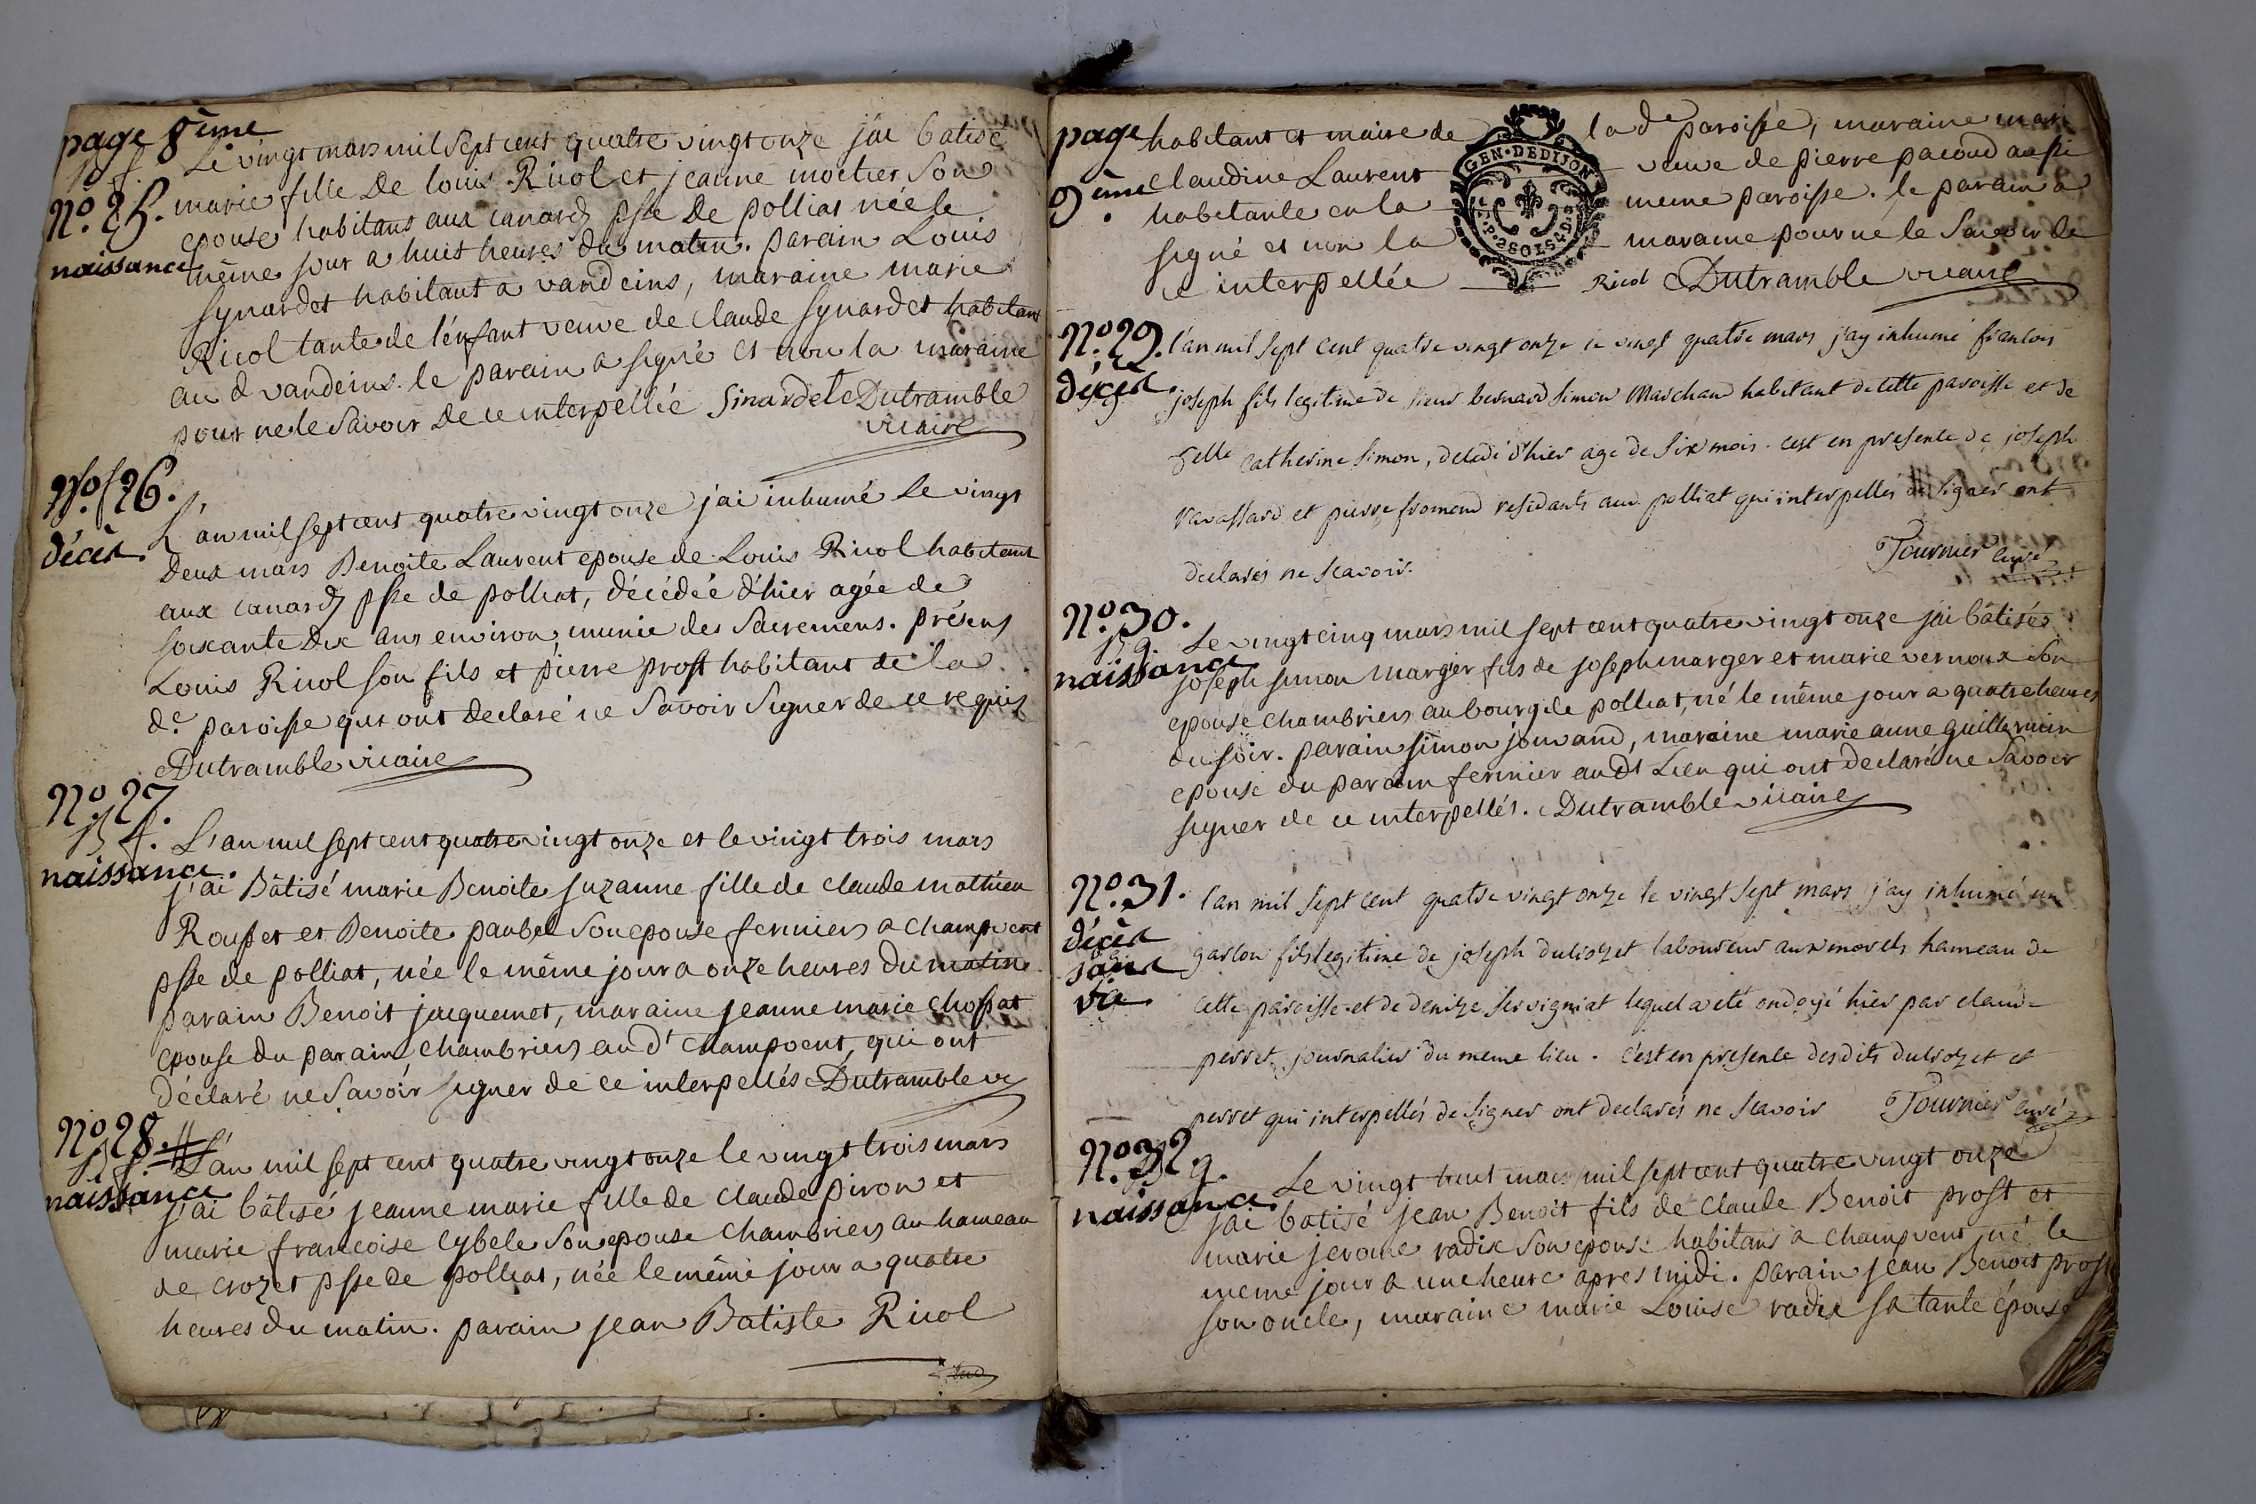 page 8ème
Le vingt mars mil sept cent quatre vingt onze j'ai batisé
N.º 25. marie fille De louis Ricol et jeanne moctier Son
epouse habitans aux canards psse De polliat née le
naissance même jour a huit heures du matin. parain Louis
Synardet habitant a vandeins, maraine marie
Ricol tante de l'enfant veuve de Claude Synardet habitant
au d vandeins. le parain a signé et non la maraine
pour ne le Savoir De ce interpellée Sinardet Dutramble
vicaire
N.º 26.
L'an mil sept cent quatre vingt onze j'ai inhumé Le vingt
décès. Deux mars Benoite Laurent epouse de Louis Ricol habitant
aux canards psse de polliat, décédée d'hier agée de
soixante Dix ans environ, munie des Sacremens. présens
Louis Ricol son fils et pierre prost habitant de la
de. paroisse qui ont declaré ne Savoir Signer de ce requis
Dutramble vicaire
N.º 27.
L'an mil sept cent quatre vingt onze et le vingt trois mars
naissance. j'ai Bâtisé marie Benoite Suzanne fille de claude mathieu
Rousset et Benoite paubel Son epouse fermiers a Champvent
psse de polliat, née le même jour a onze heures du matin.
parain Benoit jacquemet, maraine jeanne marie Chossat
epouse du parain Chambriers au dt Champvent, qui ont
déclaré ne Savoir signer de ce interpellés Dutramble vic
N.º 28.
L'an mil sept cent quatre vingt onze le vingt trois mars
naissance j'ai bâtisé jeanne marie fille de claude piron et
marie francoise Cybele Son epouse Chambriers au hameau
de crozet psse de polliat, née le même jour a quatre
heures du matin. parain jean Batiste Ricol
page habitant et maire de la de paroisse, maraine mari
9ème Claudine Laurent veuve de pierre pacoud aussi
habitante en la meme paroisse. le parain a
signé et non la maraine pour ne le Savoir de
ce interpellée Ricol Dutramble vicaire
GEN · DE DIJON
N.º 29. l'an mil sept cent quatre vingt onze le vingt quatre mars j'ay inhumé francois
décès. joseph fils legitime de sieur bernard Simon Marchand habitant de cette paroisse et de
Delle Catherine Simon, decedé d'hier age de Six mois. c'est en presence de joseph
ravassard et pierre fromond residants aud polliat qui interpelles de signer ont
declarés ne scavoir. Tournier curé
N.º 30.
Le vingt cinq mars mil sept cent quatre vingt onze j'ai bâtisé
naissance joseph simon margier fils de joseph marger et marie vernoux Son
epouse chambriers au bourg de polliat, né le même jour a quatre heures
du soir. parain simon jouvand, maraine marie anne guillermin
epouse du parain fermier au dt Lieu qui ont declaré ne Savoir
signer de ce interpellés. Dutramble vicaire
N.º 31. l'an mil sept cent quatre vingt onze le vingt sept mars j'ay inhumé un
décès garson fils legitime de joseph ducrozet laboureur aux morels hameau de
sans
vie cette paroisse et de denize servigniat lequel a eté ondoyé hier par claude
perret, journalier du meme lieu. c'est en presence desdits ducrozet et
perret qui interpellés de signer ont declarés ne scavoir Tournier curé
N.º 32. g.
Le vingt huit mars mil sept cent quatre vingt onze
naissance j'ai batisé jean Benoit fils de Claude Benoit prost et
marie jerome radix Son epouse habitans a Champvent, né le
meme jour a une heure apres midi. parain jean Benoit prost
son oncle, maraine marie Louise radix sa tante épouse